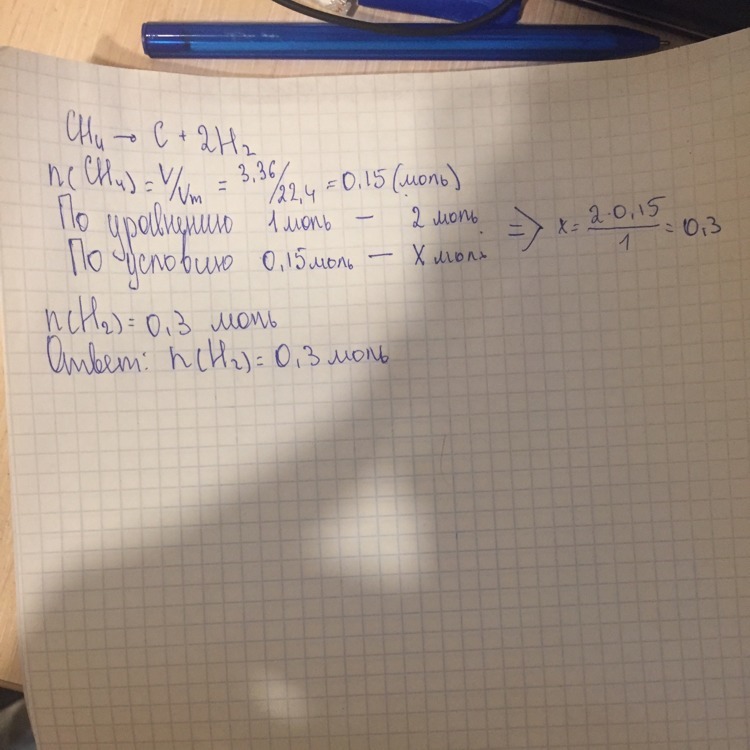 CH₄ → C + 2H₂
n(CH₄) = V/Vm = 3,36/22,4 = 0.15 (моль)
По уравнению 1 моль — 2 моль
По условию 0,15 моль — X моль
=> x = 2·0,15/1 = 0,3
n(H₂) = 0,3 моль
Ответ: n(H₂) = 0,3 моль